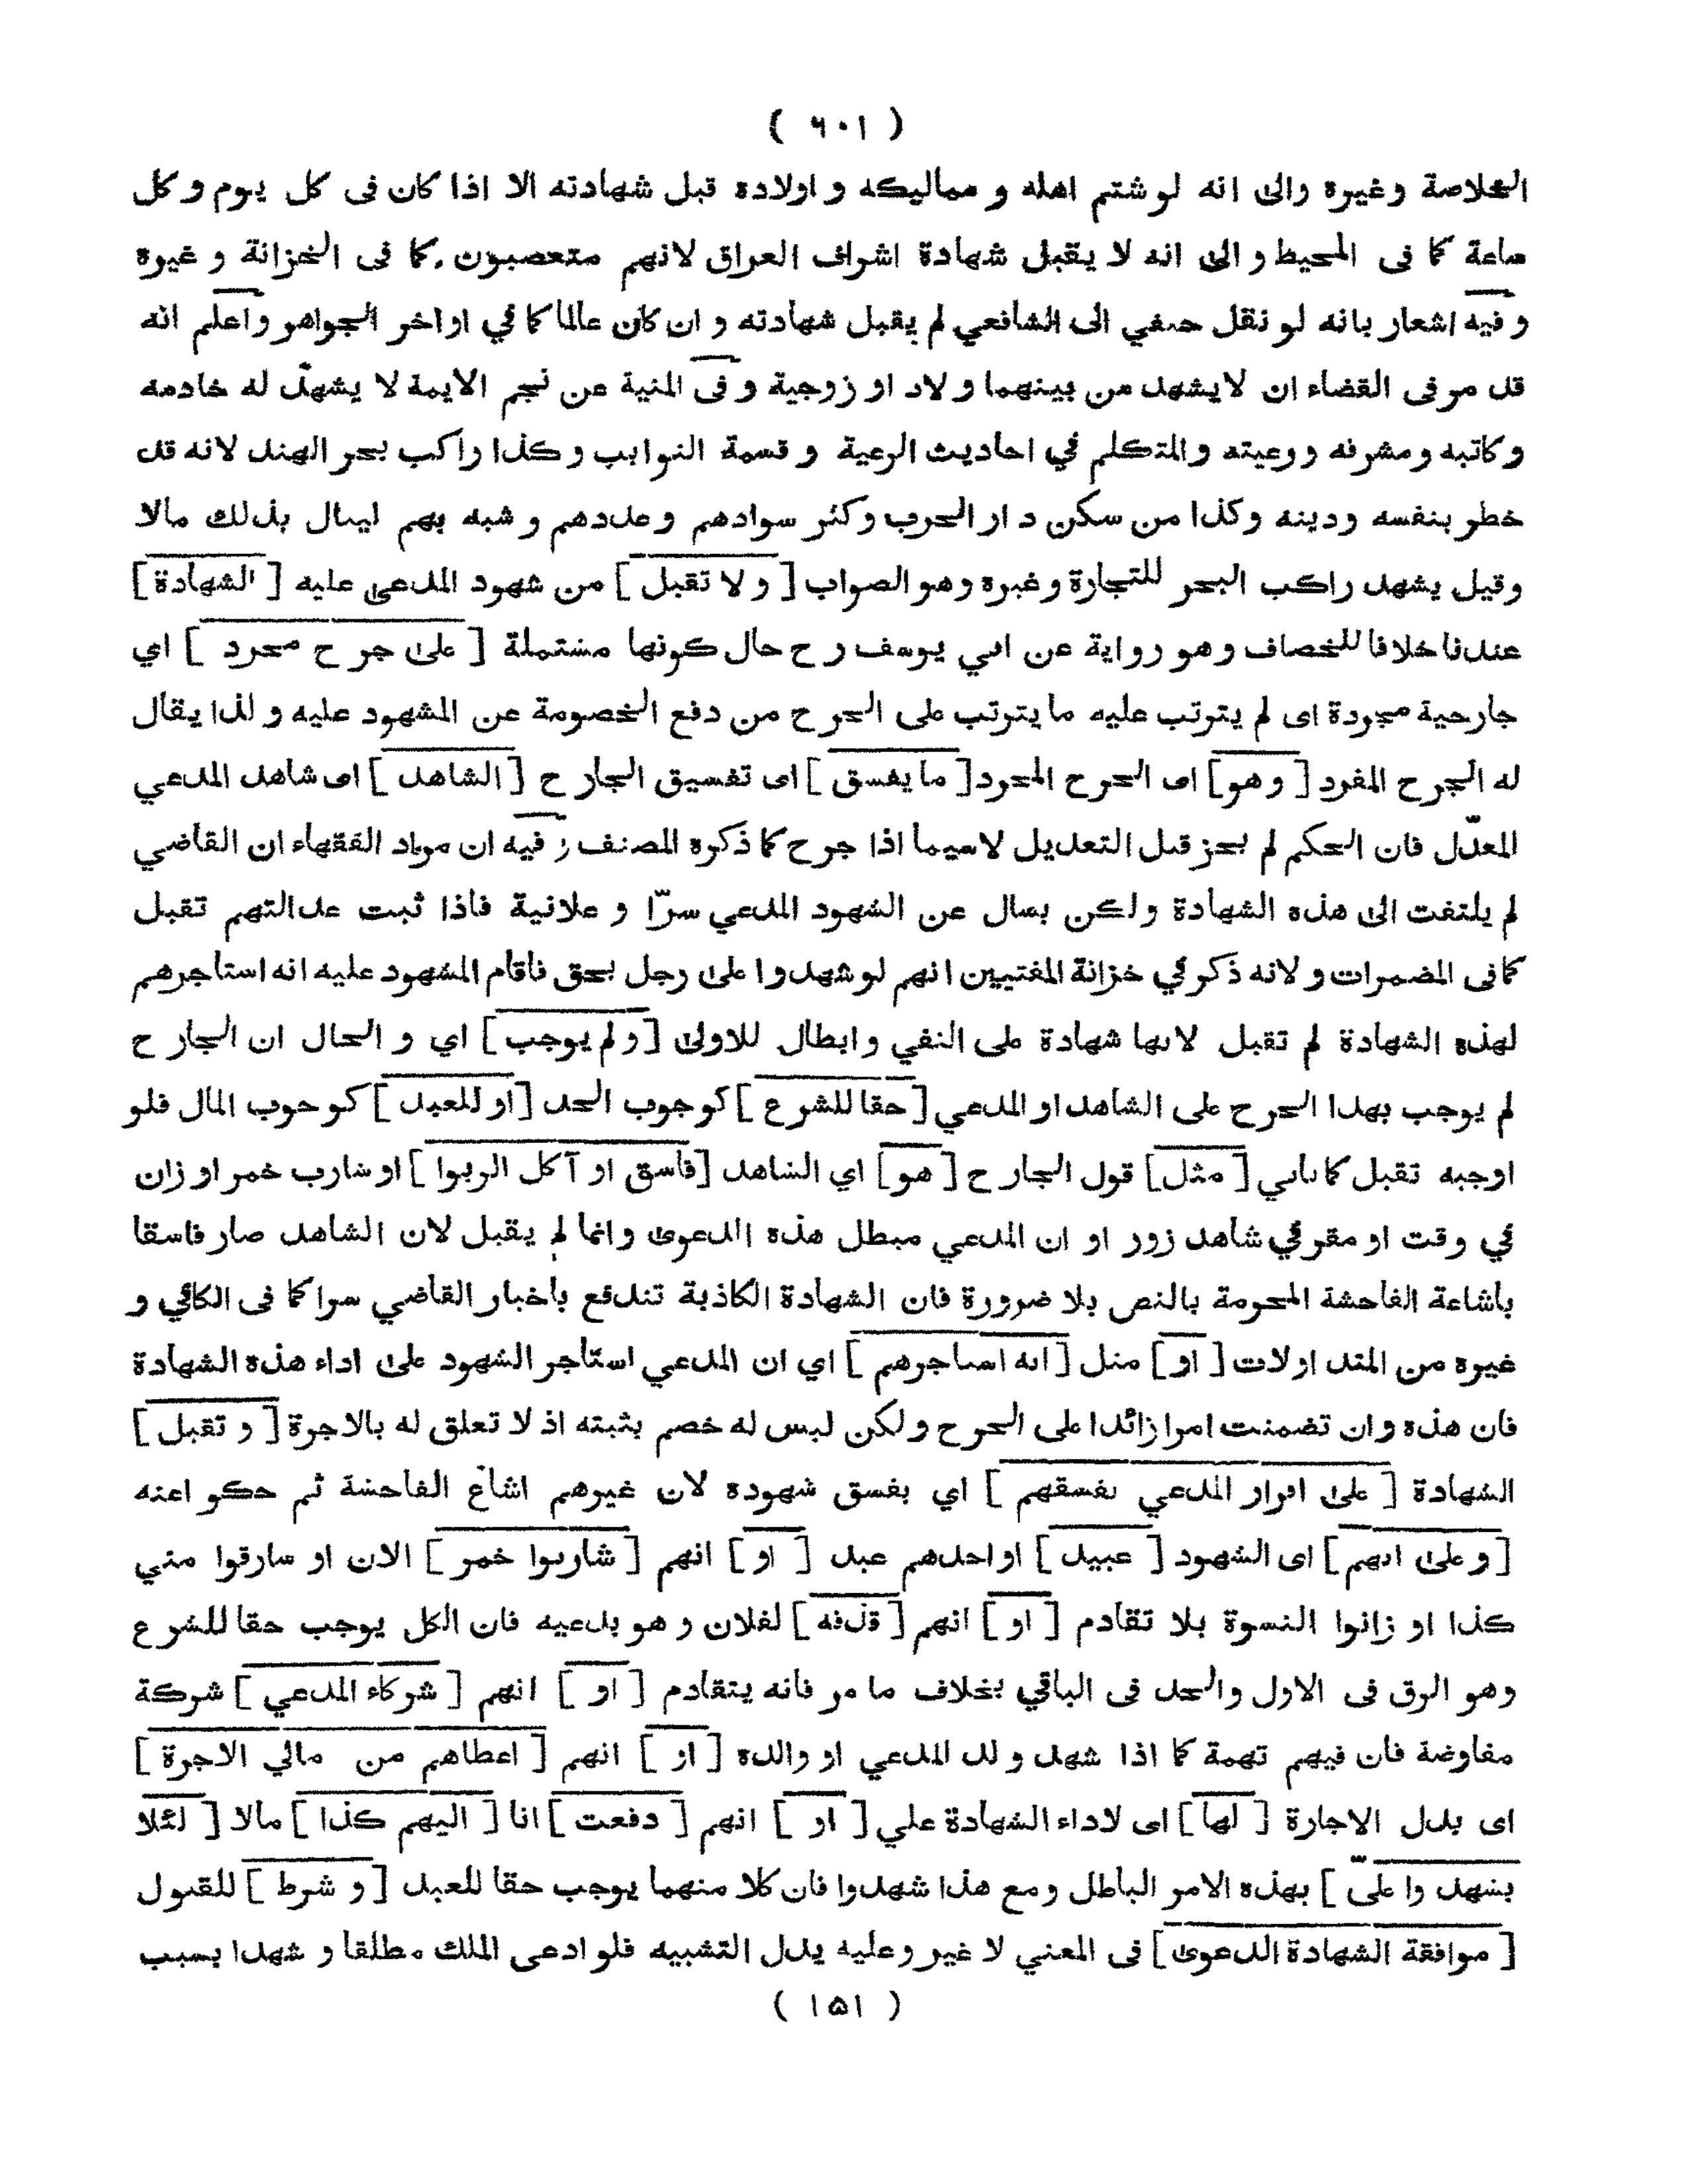 ( ٦٠١ )
الخلاصة وغيره والى انه لو شتم اهله و مماليكه و اولاده قبل شهادته الا اذا كان فى كل يوم و كل
ساعة كما فى المحيط و الى انه لا يقبل شهادة اشراف العراق لانهم متعصبون كما فى الخزانة و غيره
و فيه اشعار بانه لو نقل حنفي الى الشافعي لم يقبل شهادته و ان كان عالما كما في اواخر الجواهر واعلم انه
قد مر فى القضاء ان لا يشهد من بينهما ولاد او زوجية و فى المنية عن نجم الايمة لا يشهد له خادمه
وكاتبه و مشرفه و رعيته والمتكلم في احاديث الرعية و قسمة النوايب وكذا راكب بحر الهند لانه قد
خطر بنفسه ودينه وكذا من سكن دار الحرب وكثر سوادهم وعددهم و شبه بهم لينال بذلك مالا
وقيل يشهد راكب البحر للتجارة وغيره وهو الصواب [ و لا تقبل ] من شهود المدعى عليه [ الشهادة ]
عندنا خلافا للخصاف وهو رواية عن ابي يوسف رح حال كونها مشتملة [ على جرح مجرد ] اي
جارحية مجردة اى لم يترتب عليه ما يترتب على الجرح من دفع الخصومة عن المشهود عليه و لذا يقال
له الجرح المفرد [ وهو ] اى الجرح المجرد [ ما يفسق ] اى تفسيق الجارح [ الشاهد ] اى شاهد المدعي
المعدّل فان الحكم لم يجز قبل التعديل لاسيما اذا جرح كما ذكره المصنف و فيه ان مراد الفقهاء ان القاضي
لم يلتفت الى هذه الشهادة ولكن يسال عن الشهود المدعي سرّا و علانية فاذا ثبت عدالتهم تقبل
كما فى المضمرات و لانه ذكر في خزانة المفتيين انهم لو شهدوا على رجل بحق فاقام المشهود عليه انه استاجرهم
لهذه الشهادة لم تقبل لانها شهادة على النفي وابطال للاولى [ و لم يوجب ] اي و الحال ان الجارح
لم يوجب بهذا الجرح على الشاهد او المدعي [ حقا للشرع ] كوجوب الحد [ او للعبد ] كوجوب المال فلو
اوجبه تقبل كما ياتي [ مثل ] قول الجارح [ هو ] اي الشاهد [ فاسق او آكل الربوا ] او شارب خمر او زان
في وقت او مقر في شاهد زور او ان المدعي مبطل هذه الدعوى وانما لم يقبل لان الشاهد صار فاسقا
باشاعة الفاحشة المحرمة بالنص بلا ضرورة فان الشهادة الكاذبة تندفع باخبار القاضي سرا كما فى الكافي و
غيره من المتداولات [ او ] مثل [ انه استاجرهم ] اي ان المدعي استاجر الشهود على اداء هذه الشهادة
فان هذه وان تضمنت امرا زائدا على الجرح ولكن ليس له خصم يثبته اذ لا تعلق له بالاجرة [ و تقبل ]
الشهادة [ على اقرار المدعي بفسقهم ] اي بفسق شهوده لان غيرهم اشاع الفاحشة ثم حكوا عنه
[ و على انهم ] اى الشهود [ عبيد ] او احدهم عبد [ او ] انهم [ شاربوا خمر ] الان او سارقوا مني
كذا او زانوا النسوة بلا تقادم [ او ] انهم [ قذفه ] لفلان و هو يدعيه فان الكل يوجب حقا للشرع
وهو الرق فى الاول والحد فى الباقي بخلاف ما مر فانه يتقادم [ او ] انهم [ شركاء المدعي ] شركة
مفاوضة فان فيهم تهمة كما اذا شهد ولد المدعي او والده [ او ] انهم [ اعطاهم من مالي الاجرة ]
اى بدل الاجارة [ لها ] اى لاداء الشهادة علي [ او ] انهم [ دفعت ] انا [ اليهم كذا ] مالا [ لئلا
يشهدوا علىّ ] بهذه الامر الباطل ومع هذا شهدوا فان كلا منهما يوجب حقا للعبد [ و شرط ] للقبول
[ موافقة الشهادة الدعوى ] فى المعني لا غير وعليه يدل التشبيه فلو ادعى الملك مطلقا و شهدا بسبب
( ١٥١ )